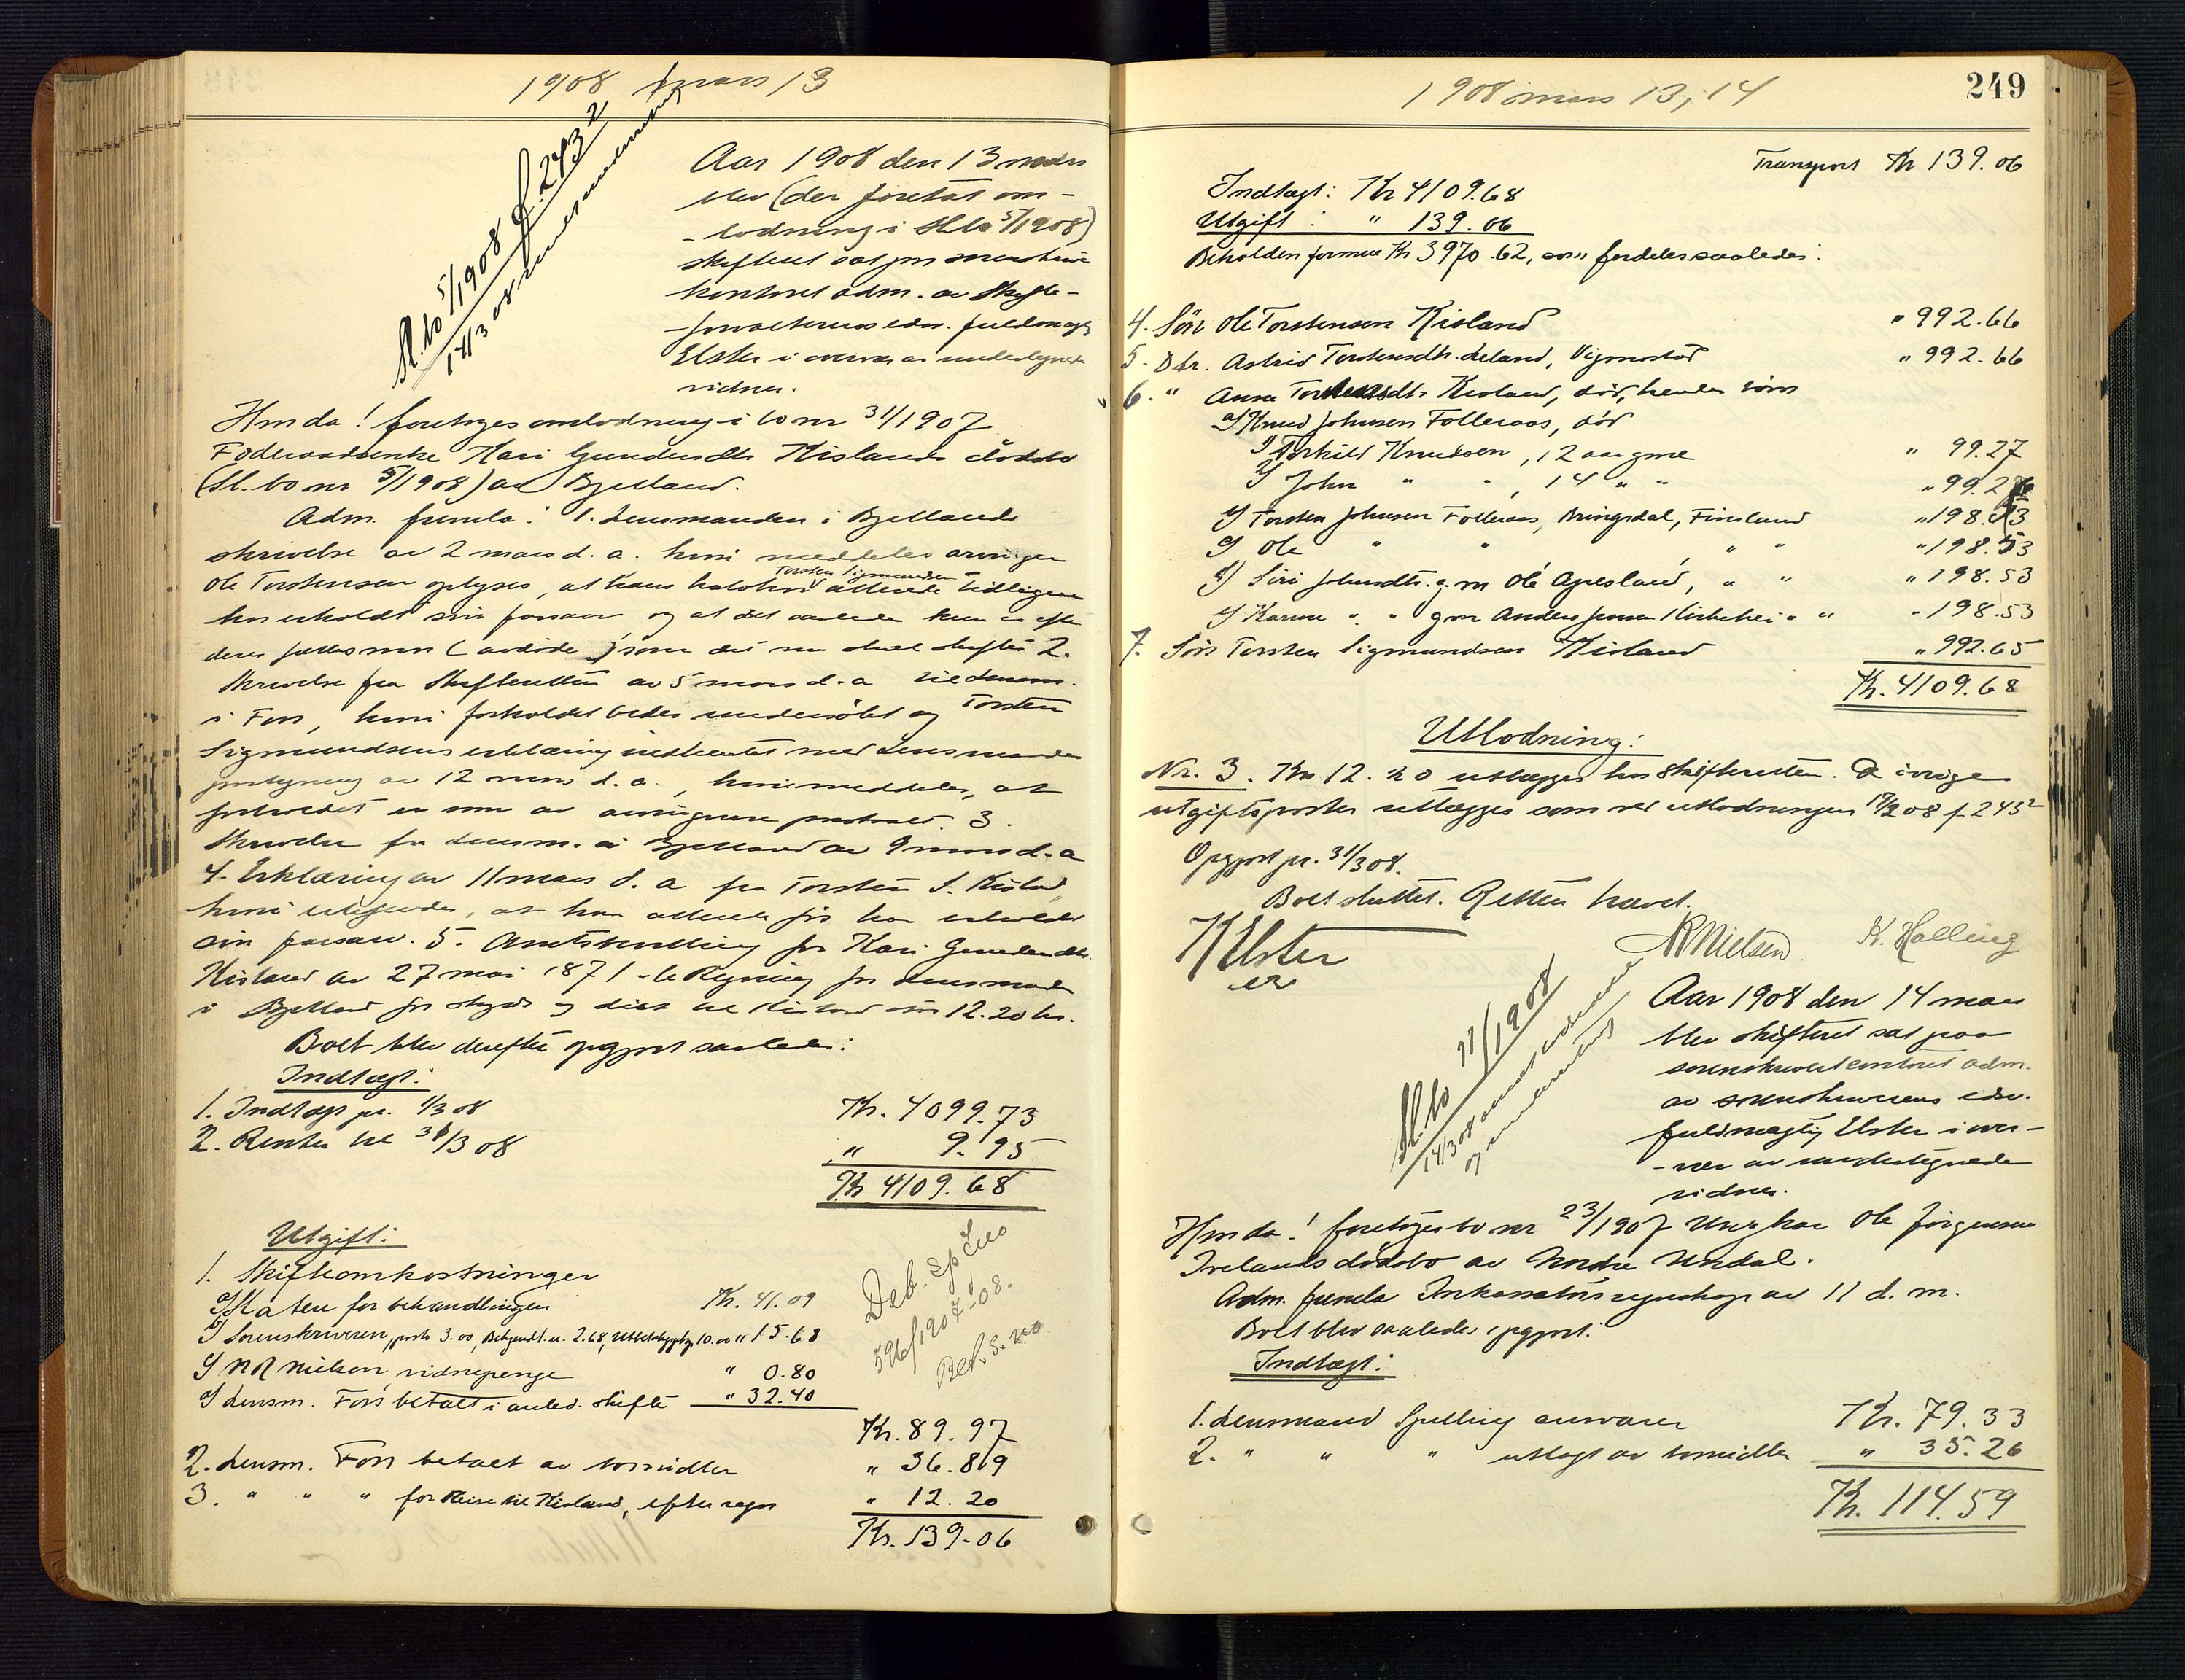 1908 mars 13
Sl. bo 5/1908 f. 243 2
14/3 08
Aar 1908 den 13 mars
blev (der foretat om-
-lodning i Sl. bo 5/1908)
skifteret sat paa sorenskriver
kontoret adm. av skifte-
-forvalterens edsv. fuldmægtig
Elster i overvær av undertegnede
vidner.
Hvorda! foretoges omlodning i bo nr 31/1907
Foderaadsenke Kari Gundersdtr Kislands dødsbo
(Sl. bo nr 5/1908) av Bjelland.
Adm. fremla: 1. Lensmanden i Bjellands
skrivelse av 2 mars d. a. hvori meddeles arvingen
Torsten Sigmundsen
Ole Torstensen oplyses, at hans halvbror allerede tidligere
har erholdt sin farsarv og at det saaledes kun er efter
deres fælles mor (avdøde) som det nu skal skiftes 2.
Skrivelse fra Skifteretten av 5 mars d. a til Lensm.
i Foss, hvori forholdet bedes undersøkt og Torsten
Sigmundsens erklæring indhentet med Lensmandens
paategning av 12 mars d. a., hvori meddeles, at
forholdet er som av arvingerne paastaaet. 3.
Skrivelse fra Lensm. i Bjelland av 9 mars d. a
4. Erklæring av 11 mars d. a fra Torsten S. Kisland,
hvori erkjendes, at han allerede før har erholdt
sin farsarv. 5. Amtskvittering for Kari Gundersdtr.
Kisland av 27 mai 1871 - 6 Regning fra Lensmanden
i Bjelland for skyds og diæt til Kisland stor 12.20 kr.
Boet blev derefter opgjort saaledes:
Indtægt:
1. Indtægt pr. 1/3 08 Kr. 4099.73
2. Renter til 31/3 08 " 9.95
Kr 4109.68
Utgift:
1. Skifteomkostninger
a) Staten for behandlingen Kr. 41.09
b) Sorenskriveren, porto 3.00, Bekjendt. u. 2.68, 10.00 " 15.68
c) N R Nielsen, vidnepenge " 0.80
d) Lensm. Foss betalt i anled. skifte " 32.40
Kr. 89.97
Deb. Sp
596/1907-08.
2. Lensm. Foss betalt av bomidler " 36.89
3. " " " for Reise til Kisland, efter regn " 12.20
Kr. 139.06
1908 mars 13, 14
249
Transport Kr 139.06
Indtægt: Kr 4109.68
Utgift: " 139.06
Beholden formue Kr 3970.62, som fordeles saaledes:
4. Søn Ole Torstensen Kisland " 992.66
5. Dtr. Astrid Torstensdtr. Leland, Vigmostad " 992.66
6. " Anna Torstensdtr. Kisland, død, hendes børn
a) Knud Johnsen Folleraas, død
1) Torkild Knudsen, 12 aar gml " 99.27
2) John " " , 14 " " " 99.26
b) Torsten Johnsen Folleraas, Bringsdal, Finsland " 198.53
c) Ole " " , " " " 198.53
d) Siri Johnsdtr. g. m Ole Apesland, " " " 198.53
e) Karine " " g m Anders Jensen Kirkehei " " " 198.53
7. Søn Torsten Sigmundsen Kisland " 992.65
Kr. 4109.68
Utlodning:
Nr. 3. Kr 12.20 utlægges hos Skifteretten. De øvrige
utgiftsposter utlægges som ved utlodningen 17/2 08 f 243 2
Opgjort pr. 31/3 08.
Boet sluttet. Retten hævet.
K Elster
NRNielsen K. Halling
Sl. bo 11/1908
14/3 08
Aar 1908 den 14 mars
blev skifteret sat paa
sorenskriverkontoret adm.
av sorenskriverens edsv.
fuldmægtig Elster i over-
-vær av undertegnede
vidner.
Hvorda! foretoges bo nr 23/1907 Ungkar Ole Jørgensen
Irelands dødsbo av Nordre Undal.
Adm. fremla Inkassators regnskap av 11 d. m.
Boet blev saaledes opgjort:
Indtægt:
1. Lensmand Spelling ansvarer Kr. 79.33
2. " " " utlagt av bomidler " 35.26
Kr. 114.59